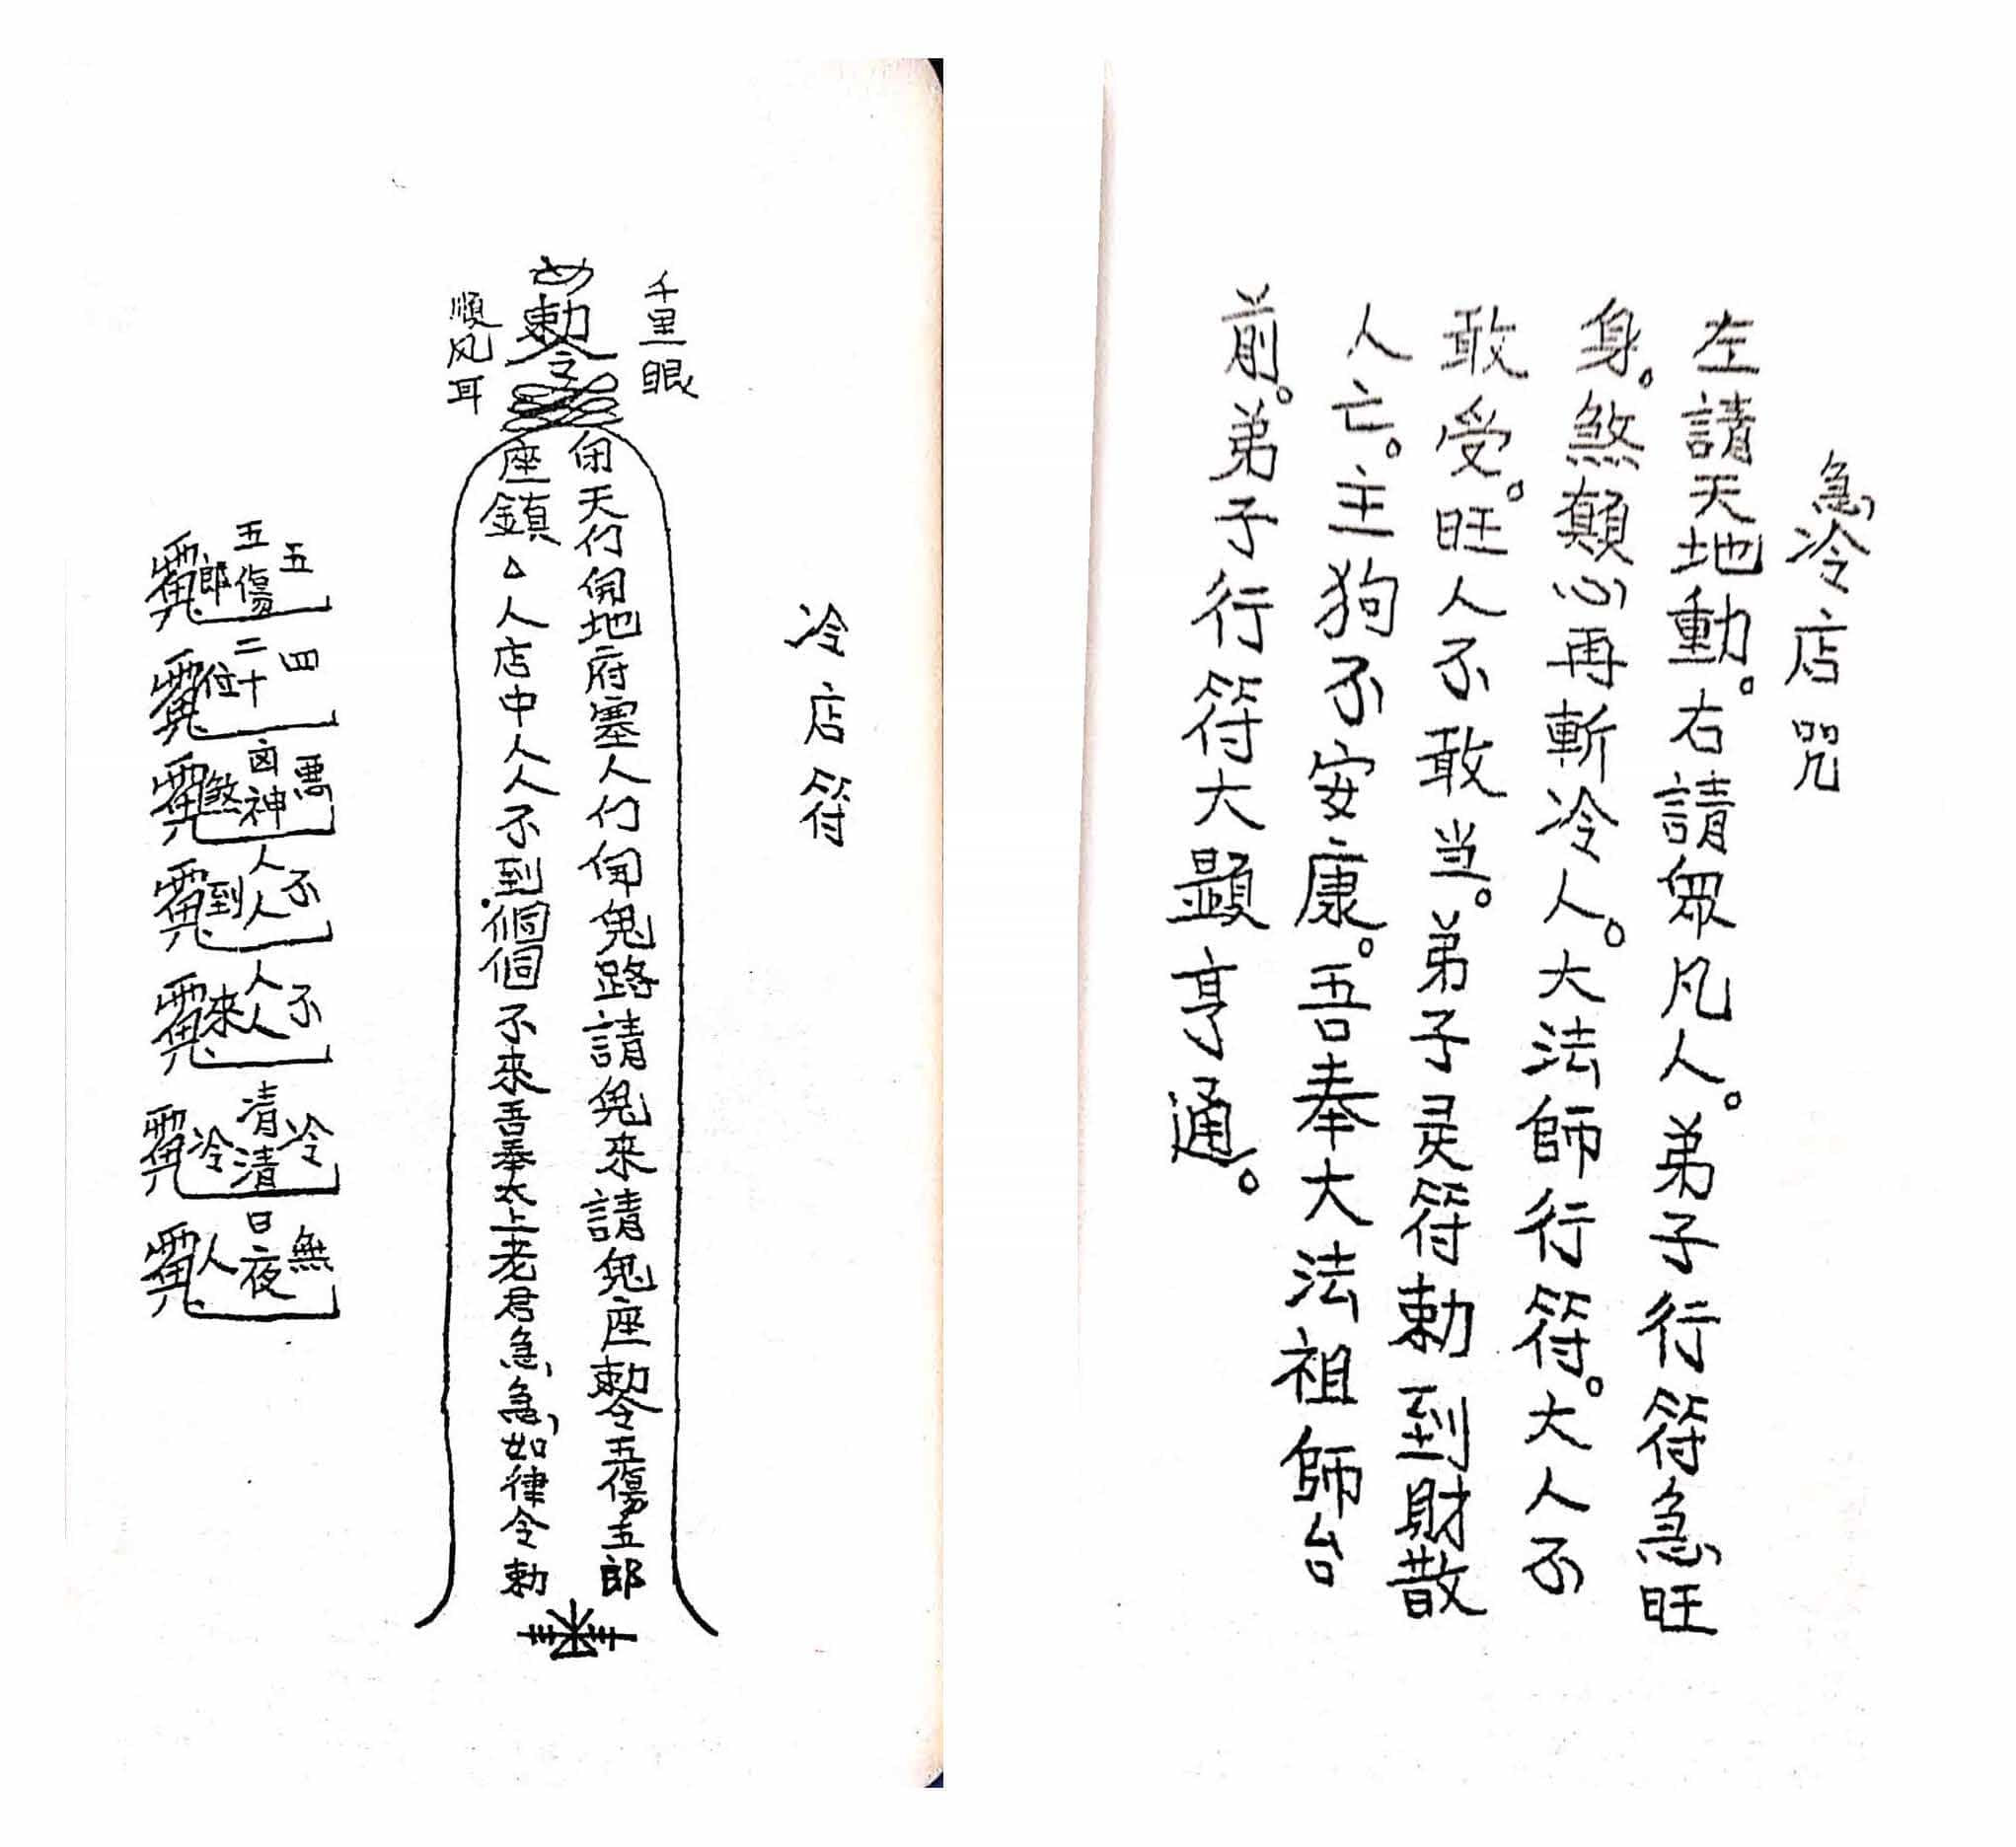 急冷店咒
左請天地動。右請眾凡人。弟子行符急旺
身。煞顛心再斬冷人。大法師行符。大人不
敢受。旺人不敢当。弟子灵符勅到財散
人亡。主狗不安康。吾奉大法祖師台
前。弟子行符大顯亨通。
冷店符
千里眼
勅令
順风耳
天们開地府塞人们開鬼路請鬼來請鬼座勅令五傷五郎
座鎮△人店中人人不到個個不來吾奉太上老君急急如律令勅
五五傷郎
四二十位
惡凶神煞
不人人到
不人人來
冷清清冷
無日夜人